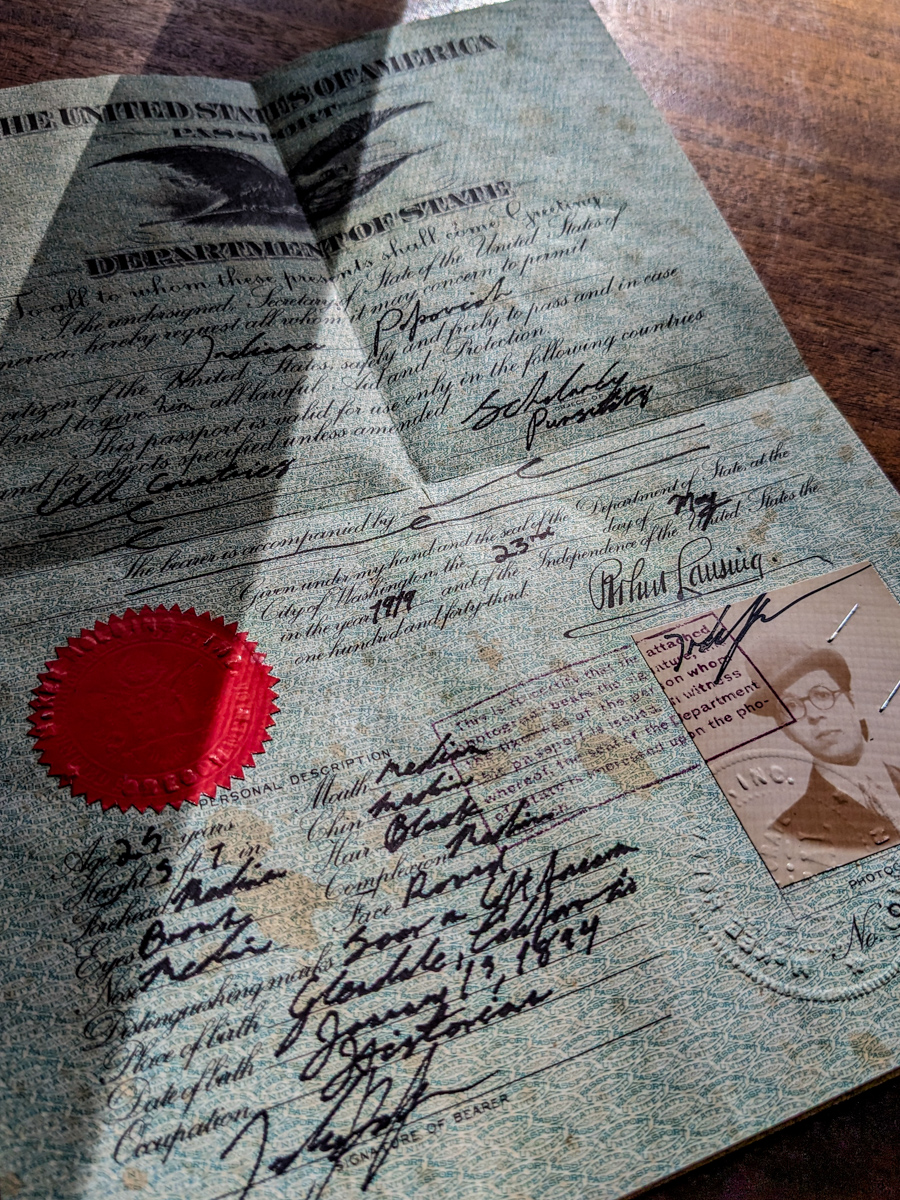 THE UNITED STATES OF AMERICA
PASSPORT
DEPARTMENT OF STATE
To all to whom these presents shall come Greeting
I the undersigned, Secretary of State of the United States of
America, hereby request all whom it may concern to permit
Indiana Popovich
citizen of the United States, safely and freely to pass and in case
of need to give him all lawful Aid and Protection.
This passport is valid for use only in the following countries
and for objects specified unless amended
Scholarly
Pursuits
All Countries
The bearer is accompanied by
Given under my hand and the seal of the Department of State at the
City of Washington, the 23rd day of May
in the year 1919 and of the Independence of the United States the
one hundred and forty-third.
Robert Lansing.
This is to certify that the attached
photograph bears the signature,
on whom
passport is issued in witness
whereof, the seal of the Department
impressed upon the pho-
PERSONAL DESCRIPTION
Age 25 years
Height 5 ft 7 in
Forehead Medium
Eyes Brown
Nose Medium
Mouth Medium
Chin Medium
Hair Black
Complexion Medium
Face Round
Distinguishing marks Scar on left forearm
Place of birth Glendale, California
Date of birth January 13, 1894
Occupation Historian
SIGNATURE OF BEARER
INC.
No.